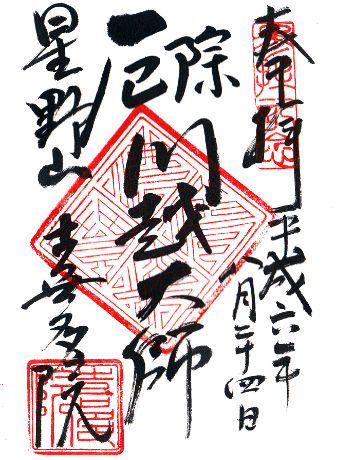 奉拝
平成六年
八月二十四日
厄除
川越大師
星野山
喜多院